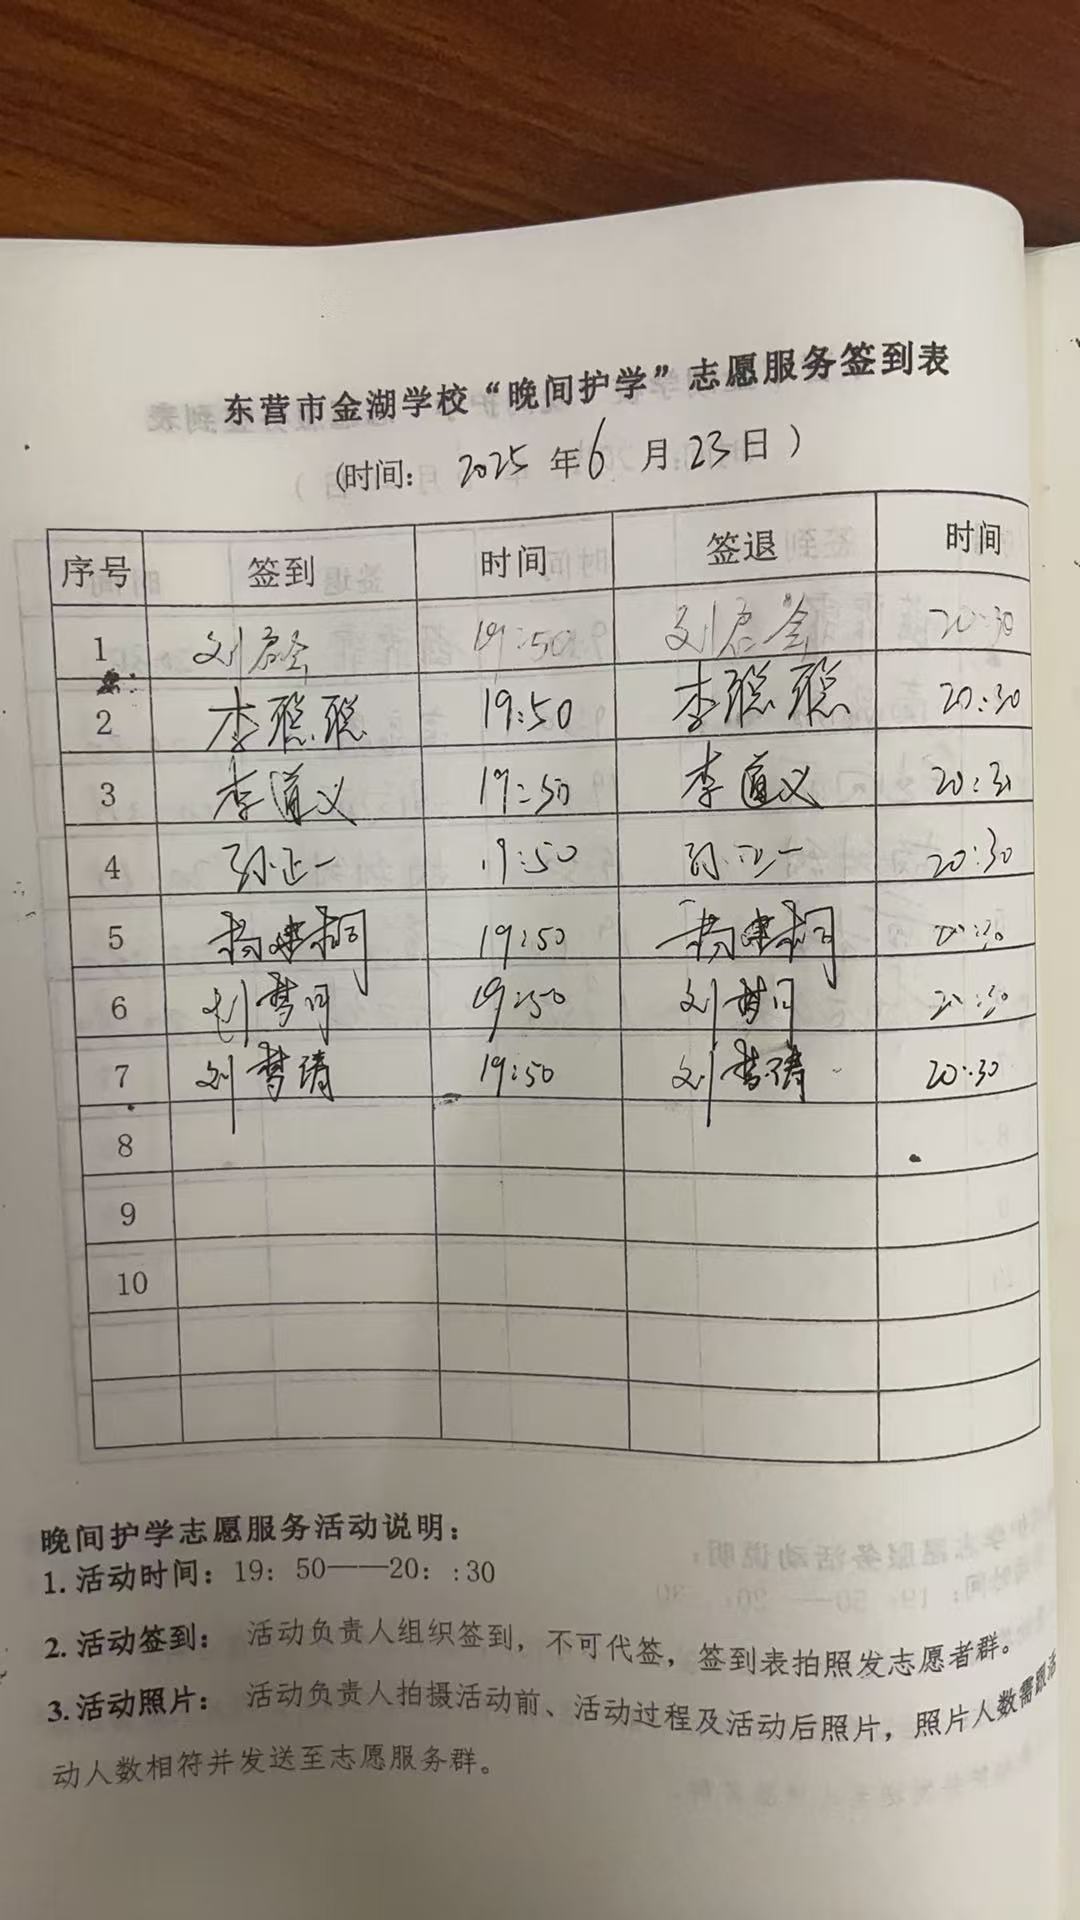 东营市金湖学校“晚间护学”志愿服务签到表
(时间: 2025 年 6 月 23 日 )
序号 签到 时间 签退 时间
1 刘 19:50 刘 20:30
2 李聪聪 19:50 李聪聪 20:30
3 李道义 19:50 李道义 20:30
4 孙正一 19:50 孙正一 20:30
5 杨建桐 19:50 杨建桐 20:30
6 刘梦月 19:50 刘梦月 20:30
7 刘梦琦 19:50 刘梦琦 20:30
8
9
10
晚间护学志愿服务活动说明:
1. 活动时间: 19: 50——20: :30
2. 活动签到: 活动负责人组织签到, 不可代签, 签到表拍照发志愿者群。
3. 活动照片: 活动负责人拍摄活动前、活动过程及活动后照片, 照片人数需跟活
动人数相符并发送至志愿服务群。